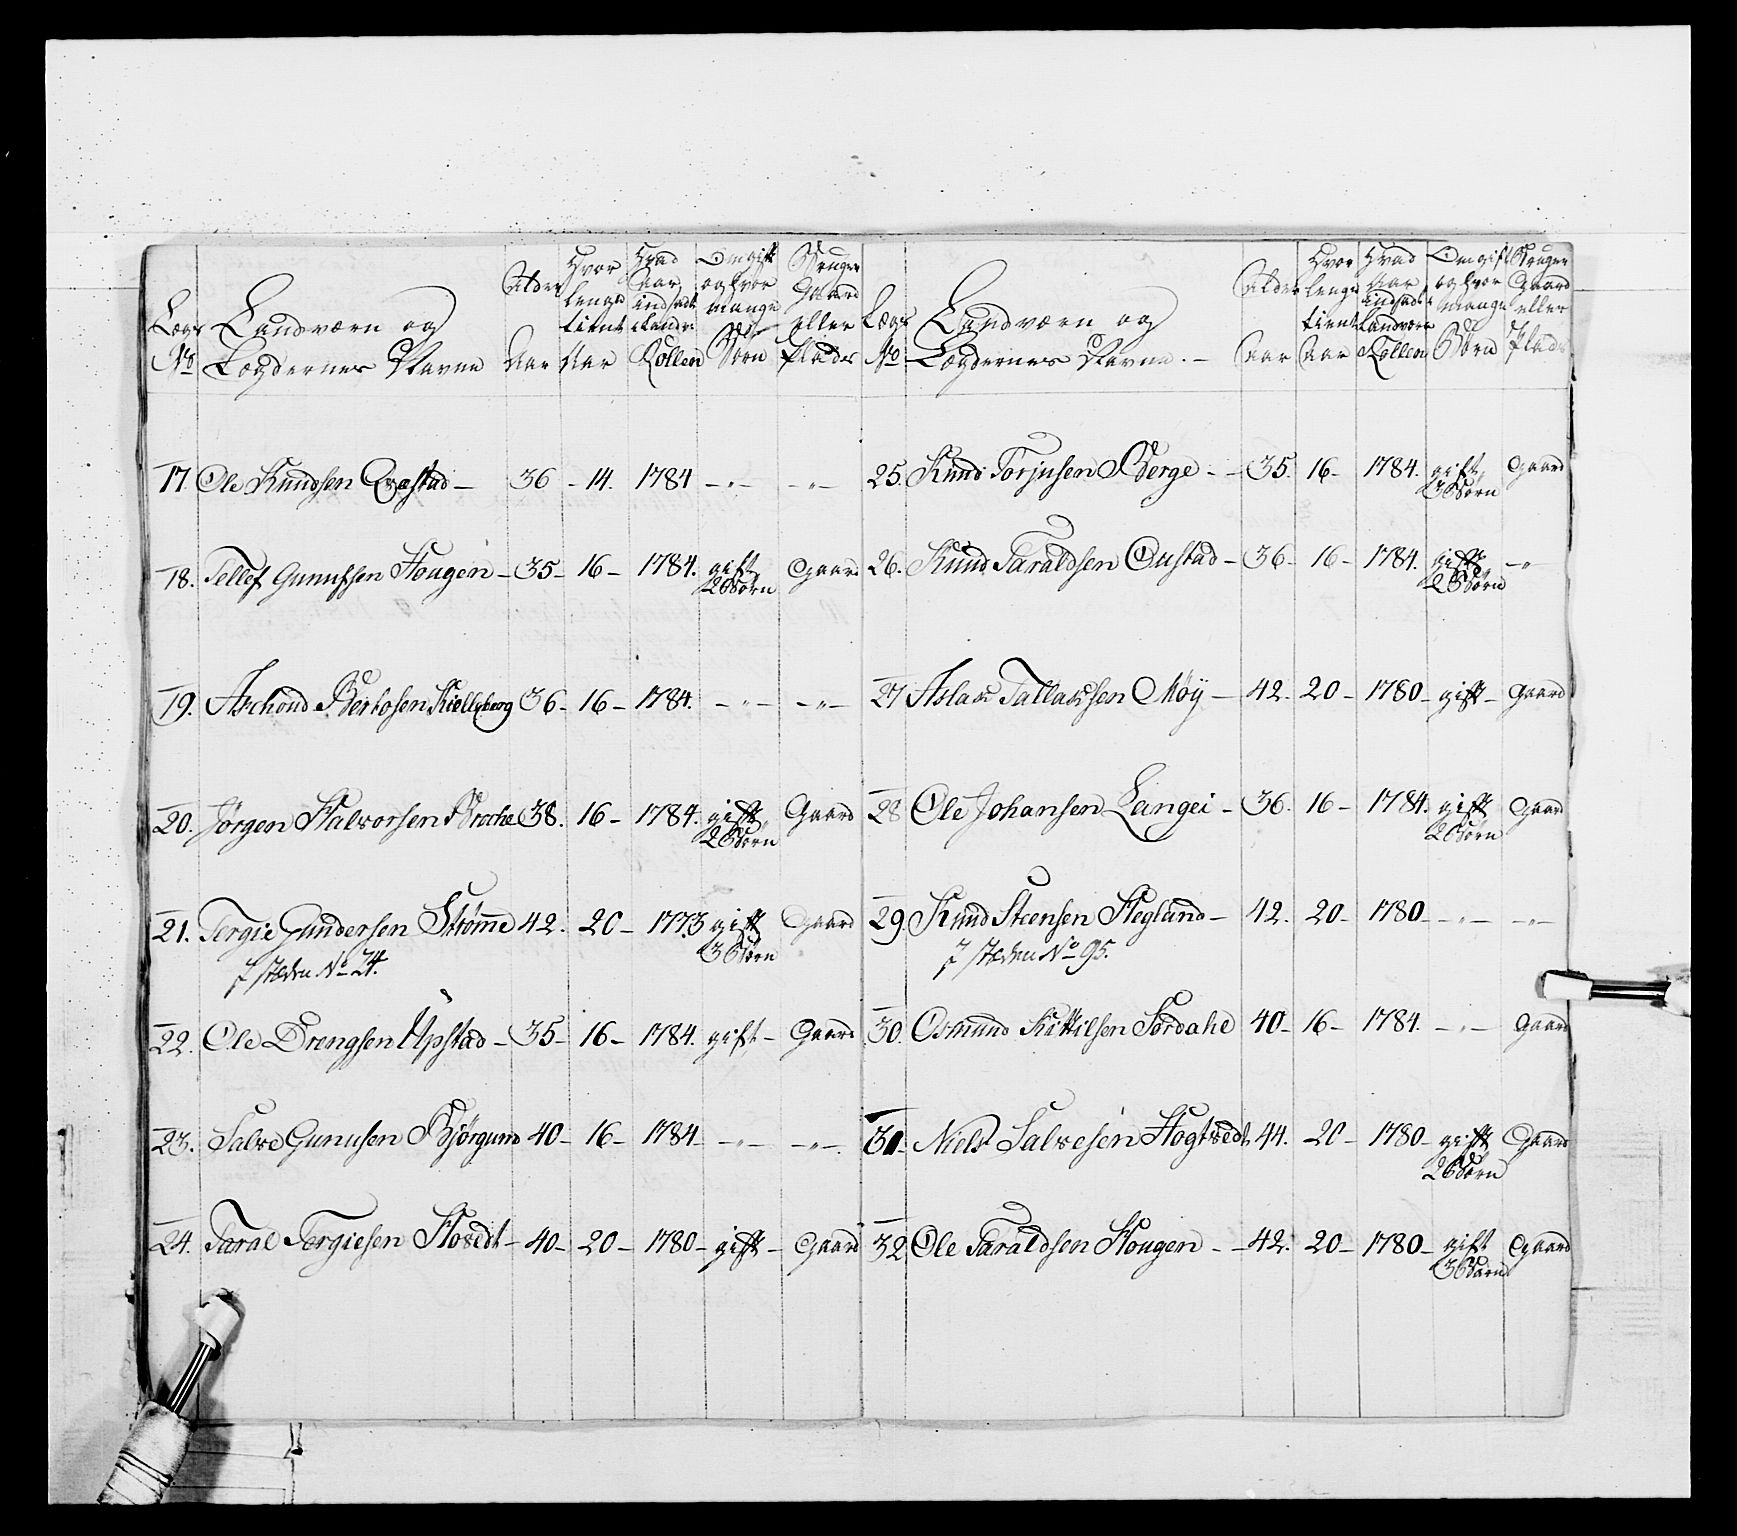 Lægs No
Landværn og
Lægdernes Navne
Alder
Aar
Hvor
lenge
tient
Aar
Hvad
Aar
indsadt
i Landv
Rollen
Om gift
og hvor
mange
Børn
Bruger
Gaard
eller
Plads
17. Ole Knudsen Qvastad — 36 - 14. 1784 —„— —„—
18. Tellef Gunufsen Hougen — 35 — 16 — 1784. gift Gaard
2 Børn
19. Aschoud Berhosen Kiellyberg 36 — 16 — 1784. —„— —„—
20. Jørgen Halvorsen Broche 38. 16 — 1784. gift Gaard
2 Børn
21. Tergie Gundersen Strømme 42. 20 — 1773 gift Gaard
3 Børn
J stæden No 24.
22. Ole Drengsen Upstad — 35 — 16 — 1784. gift — Gaard
23. Salve Gunusen Bjørgum 40 — 16 — 1784 —„— —„—
24. Taral Tergiesen Hovedt — 40 — 20 — 1780 — gift — Gaard
Lægs No
Landværn og
Lægdernes Navne. —
Alder
Aar
Hvor
lenge
tient
Aar
Hvad
Aar
indsadt i
Landværn
Rollen
Om gift
og hvor
mange
Børn
Bruger
Gaard
eller
Plads
25. Knud Torjusen Berge - — 35. 16 — 1784. gift, Gaard
3 Børn
26. Knud Taraldsen Oustad — 36 — 16 — 1784. gift —„
2 Børn
27 Aslak Tallaksen Møÿ — 42. 20 — 1780 — gift — Gaard
28 Ole Johansen Langei — 36. 16 — 1784. gift Gaard
2 Børn
29. Knud Steensen Hegland — 42. 20 — 1780 —„— —„—
J stæden No 95.
30. Osmund Kittilsen Sordahl 40 — 16 — 1784. —„— Gaard
31. Niels Salvesen Hogtvedt 44. 20 — 1780 — gift Gaard
2 Børn
32 Ole Taraldsen Hougen - — 42. 20 — 1780 — gift Gaard
3 Børn